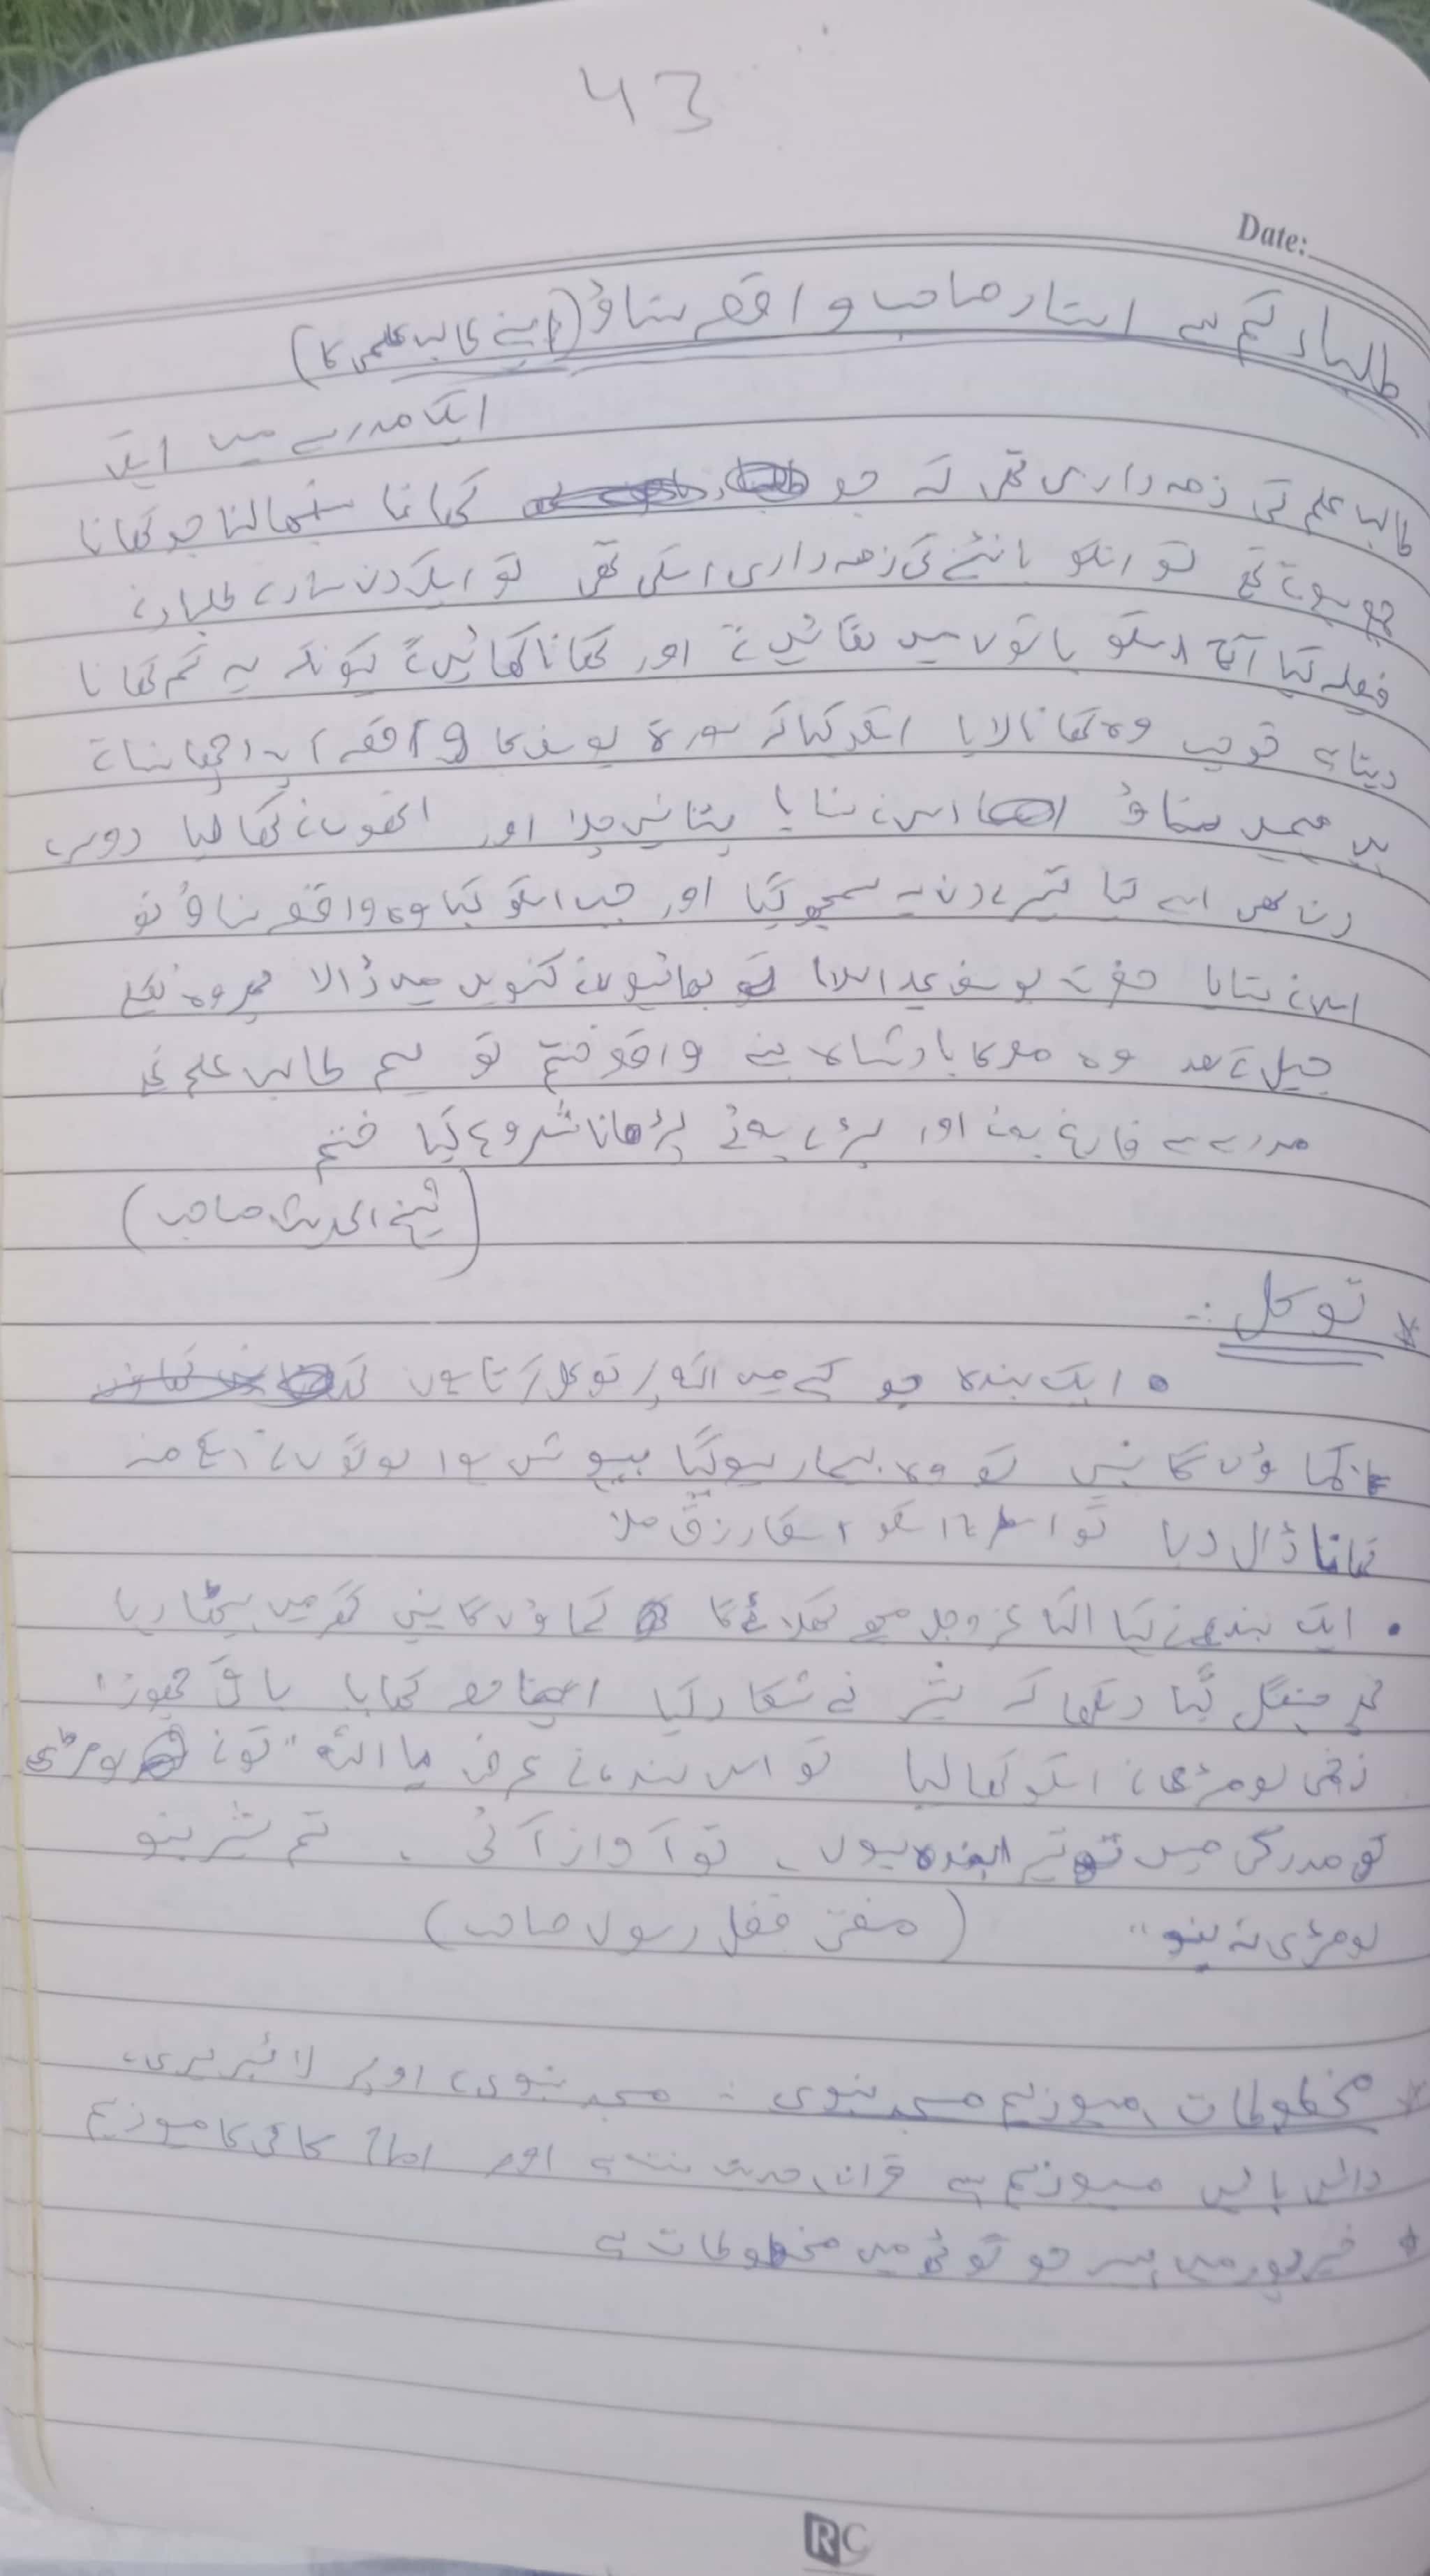 43
Date:
طلباء کہتے ہے استاد صاحب واقعہ سناؤ (اپنے طالب علمی کا)
ایک مدرسے میں ایک
طالب علم کی ذمہ داری تھی کہ جو کھانا سنبھالنا جو کھانا
جو ہوتے تھے تو انکو بانٹنے کی ذمہ داری اسکی تھی تو ایک دن سارے طلباء نے
فیصلہ کیا آج اسکو باتوں میں لگائیں گے اور کھانا کھائیں گے کیونکہ یہ کم کھانا
دیتا ہے تو جب وہ کھانا لایا اسکو کہا کہ سورۃ یوسف کا واقعہ یہ اچھا سناتے
ہیں ہمیں سناؤ اس نے سنایا پتا نہیں چلا اور انھوں نے کھا لیا دوسرے
دن بھی ایسے کیا تیسرے دن یہ سمجھ گیا اور جب اسکو کہا وہ واقعہ سناؤ تو
اس نے بتایا حضرت یوسف علیہ السلام کو بھائیوں نے کنویں میں ڈالا پھر وہ نکلے
جیل کے بعد وہ مصر کا بادشاہ بنے واقعہ ختم تو ہم طالب علم تھے
مدرسے سے فارغ ہوئے اور بڑے ہوئے پڑھانا شروع کیا ختم
(شیخ الحدیث صاحب)
* توکل :-
• ایک بندہ جو کہے میں اللہ پر توکل کرتا ہوں
کھاؤں گا نہیں تو وہ بیمار ہو گیا بیہوش ہوا لوگوں نے اسکے منہ
کھانا ڈال دیا تو اسطرح اسکو اسکا رزق ملا
• ایک بندے نے کہا اللہ عزوجل مجھے کھلائے گا کماؤں گا نہیں گھر میں بیٹھا رہا
پھر جنگل گیا دیکھا کہ شیر نے شکار کیا اپنا حصہ کھایا باقی چھوڑا
زخمی لومڑی نے اسکو کھا لیا تو اس بندے نے عرض یا اللہ "تو نے لومڑی
کی مدد کی میں تو تیرا بندہ ہوں۔ تو آواز آئی ۔ تم شیر بنو
لومڑی نہ بنو" (مفتی فضل رسول صاحب)
* مخطوطات میوزیم مسجد نبوی :- مسجد نبوی کے اوپر لائبریری،
دائیں بائیں میوزیم ہے قرآن، حدیث نسخے اور کا میوزیم
* خیرپور میں پیر جو گوٹھ میں مخطوطات ہے
RC